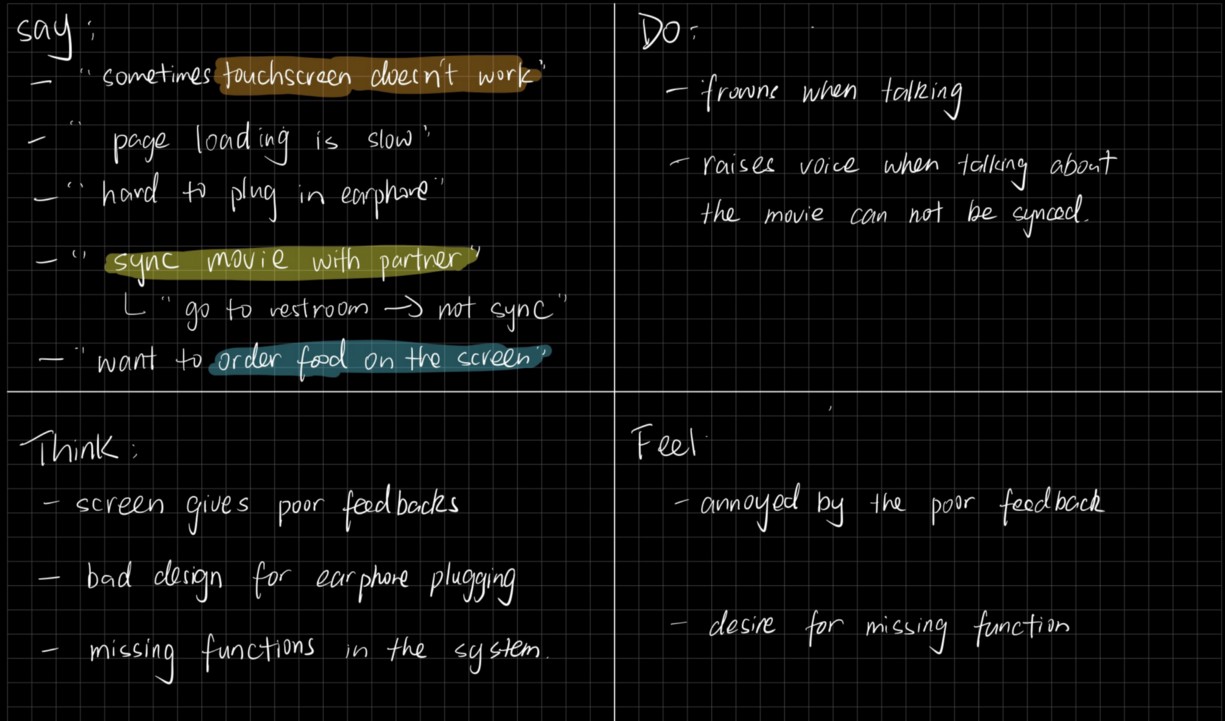 say:
- "sometimes touchscreen doesn't work"
- "page loading is slow"
- "hard to plug in earphone"
- "sync movie with partner"
└ "go to restroom → not sync"
- "want to order food on the screen"
Do:
- frowns when talking
- raises voice when talking about
the movie can not be synced.
Think:
- screen gives poor feedbacks
- bad design for earphone plugging
- missing functions in the system.
Feel
- annoyed by the poor feedback
- desire for missing function